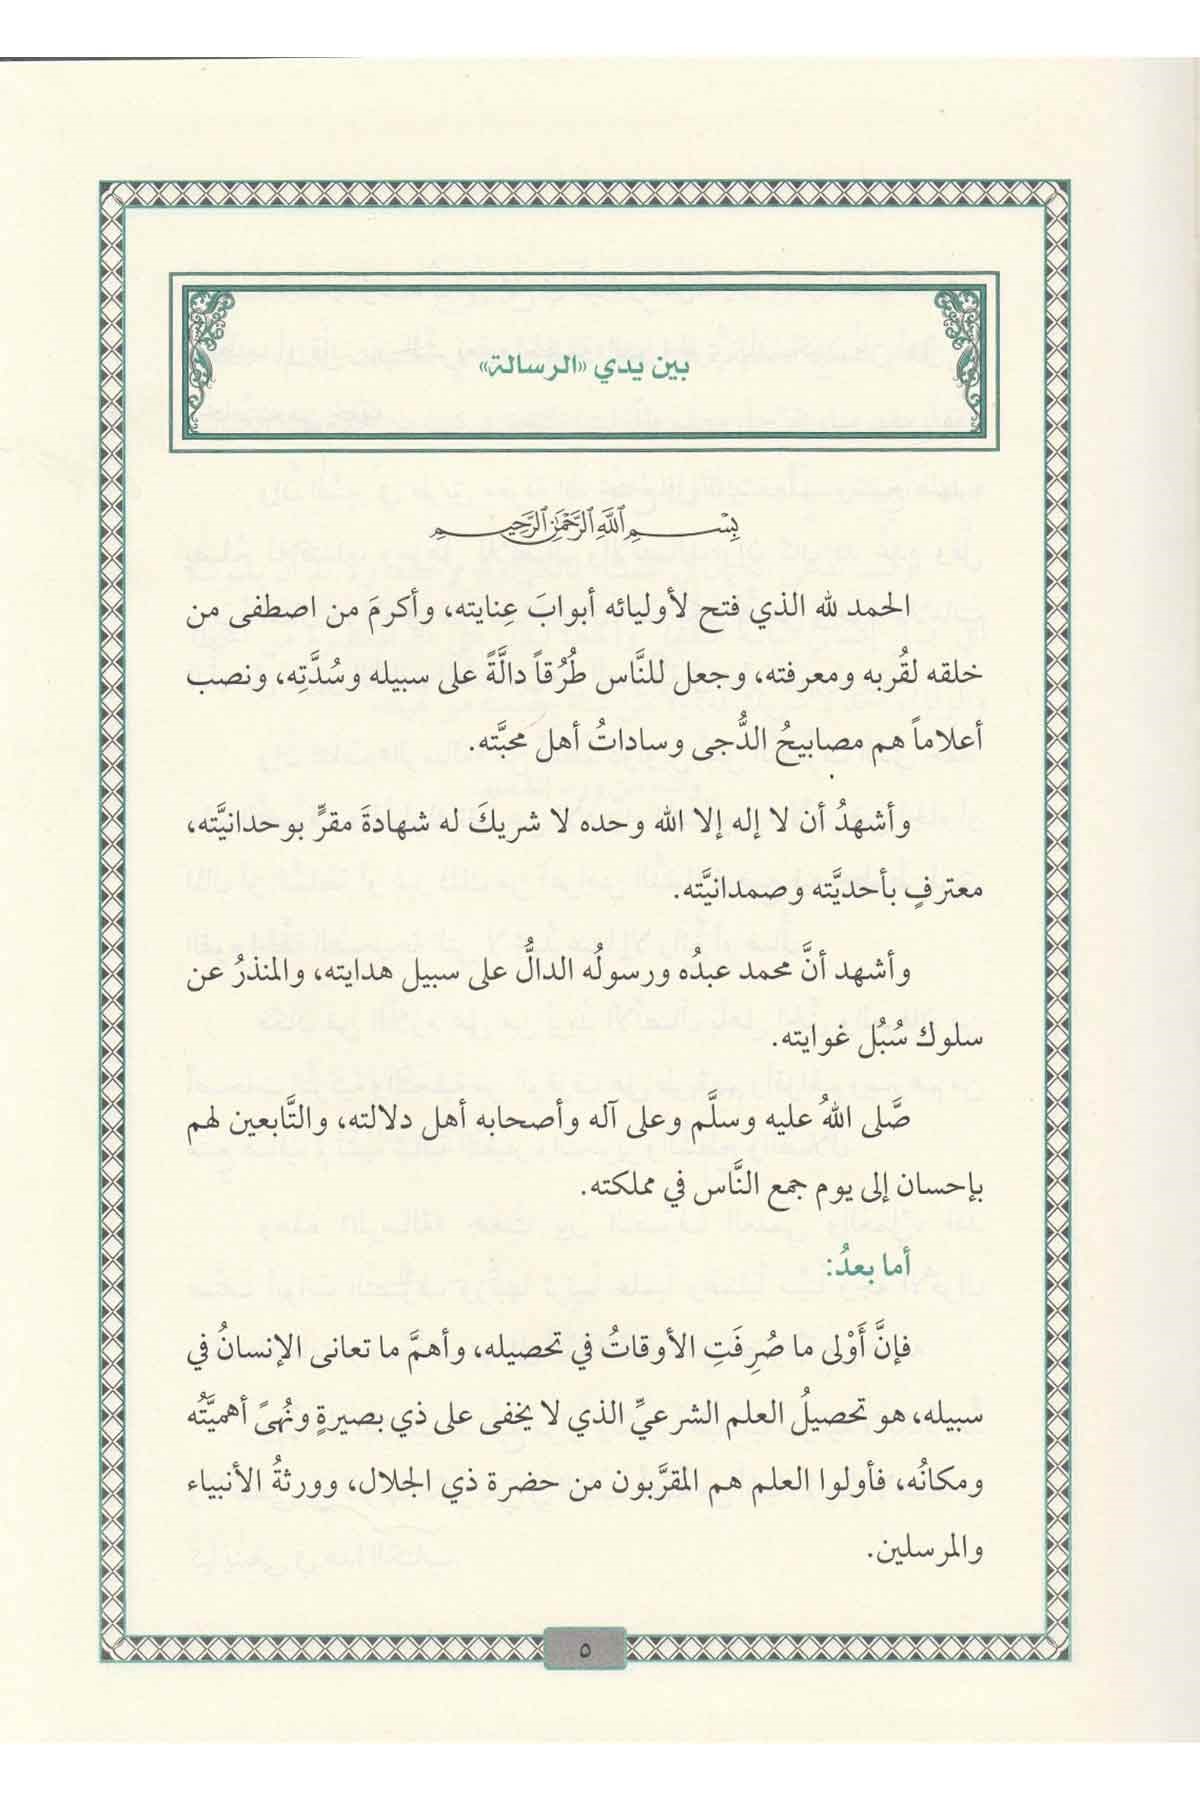 بين يدي «الرسالة»
بِسْمِ اللَّهِ الرَّحْمَٰنِ الرَّحِيمِ
الحمد لله الذي فتح لأوليائه أبوابَ عِنايته، وأكرمَ من اصطفى من
خلقه لقُربه ومعرفته، وجعل للنَّاس طُرُقاً دالَّةً على سبيله وسُدَّتِه، ونصب
أعلاماً هم مصابيحُ الدُّجى وساداتُ أهل محبَّته.
وأشهدُ أن لا إله إلا الله وحده لا شريكَ له شهادةَ مقرٍّ بوحدانيَّته،
معترفٍ بأحديَّته وصمدانيَّته.
وأشهد أنَّ محمد عبدُه ورسولُه الدالُّ على سبيل هدايته، والمنذرُ عن
سلوك سُبُل غوايته.
صَّلى اللهُ عليه وسلَّم وعلى آله وأصحابه أهل دلالته، والتَّابعين لهم
بإحسان إلى يوم جمع النَّاس في مملكته.
أما بعدُ:
فإنَّ أَوْلى ما صُرِفَتِ الأوقاتُ في تحصيله، وأهمَّ ما تعانى الإنسانُ في
سبيله، هو تحصيلُ العلم الشرعيِّ الذي لا يخفى على ذي بصيرةٍ ونُهىً أهميَّتُه
ومكانُه، فأولوا العلم هم المقرَّبون من حضرة ذي الجلال، وورثةُ الأنبياء
والمرسلين.
٥